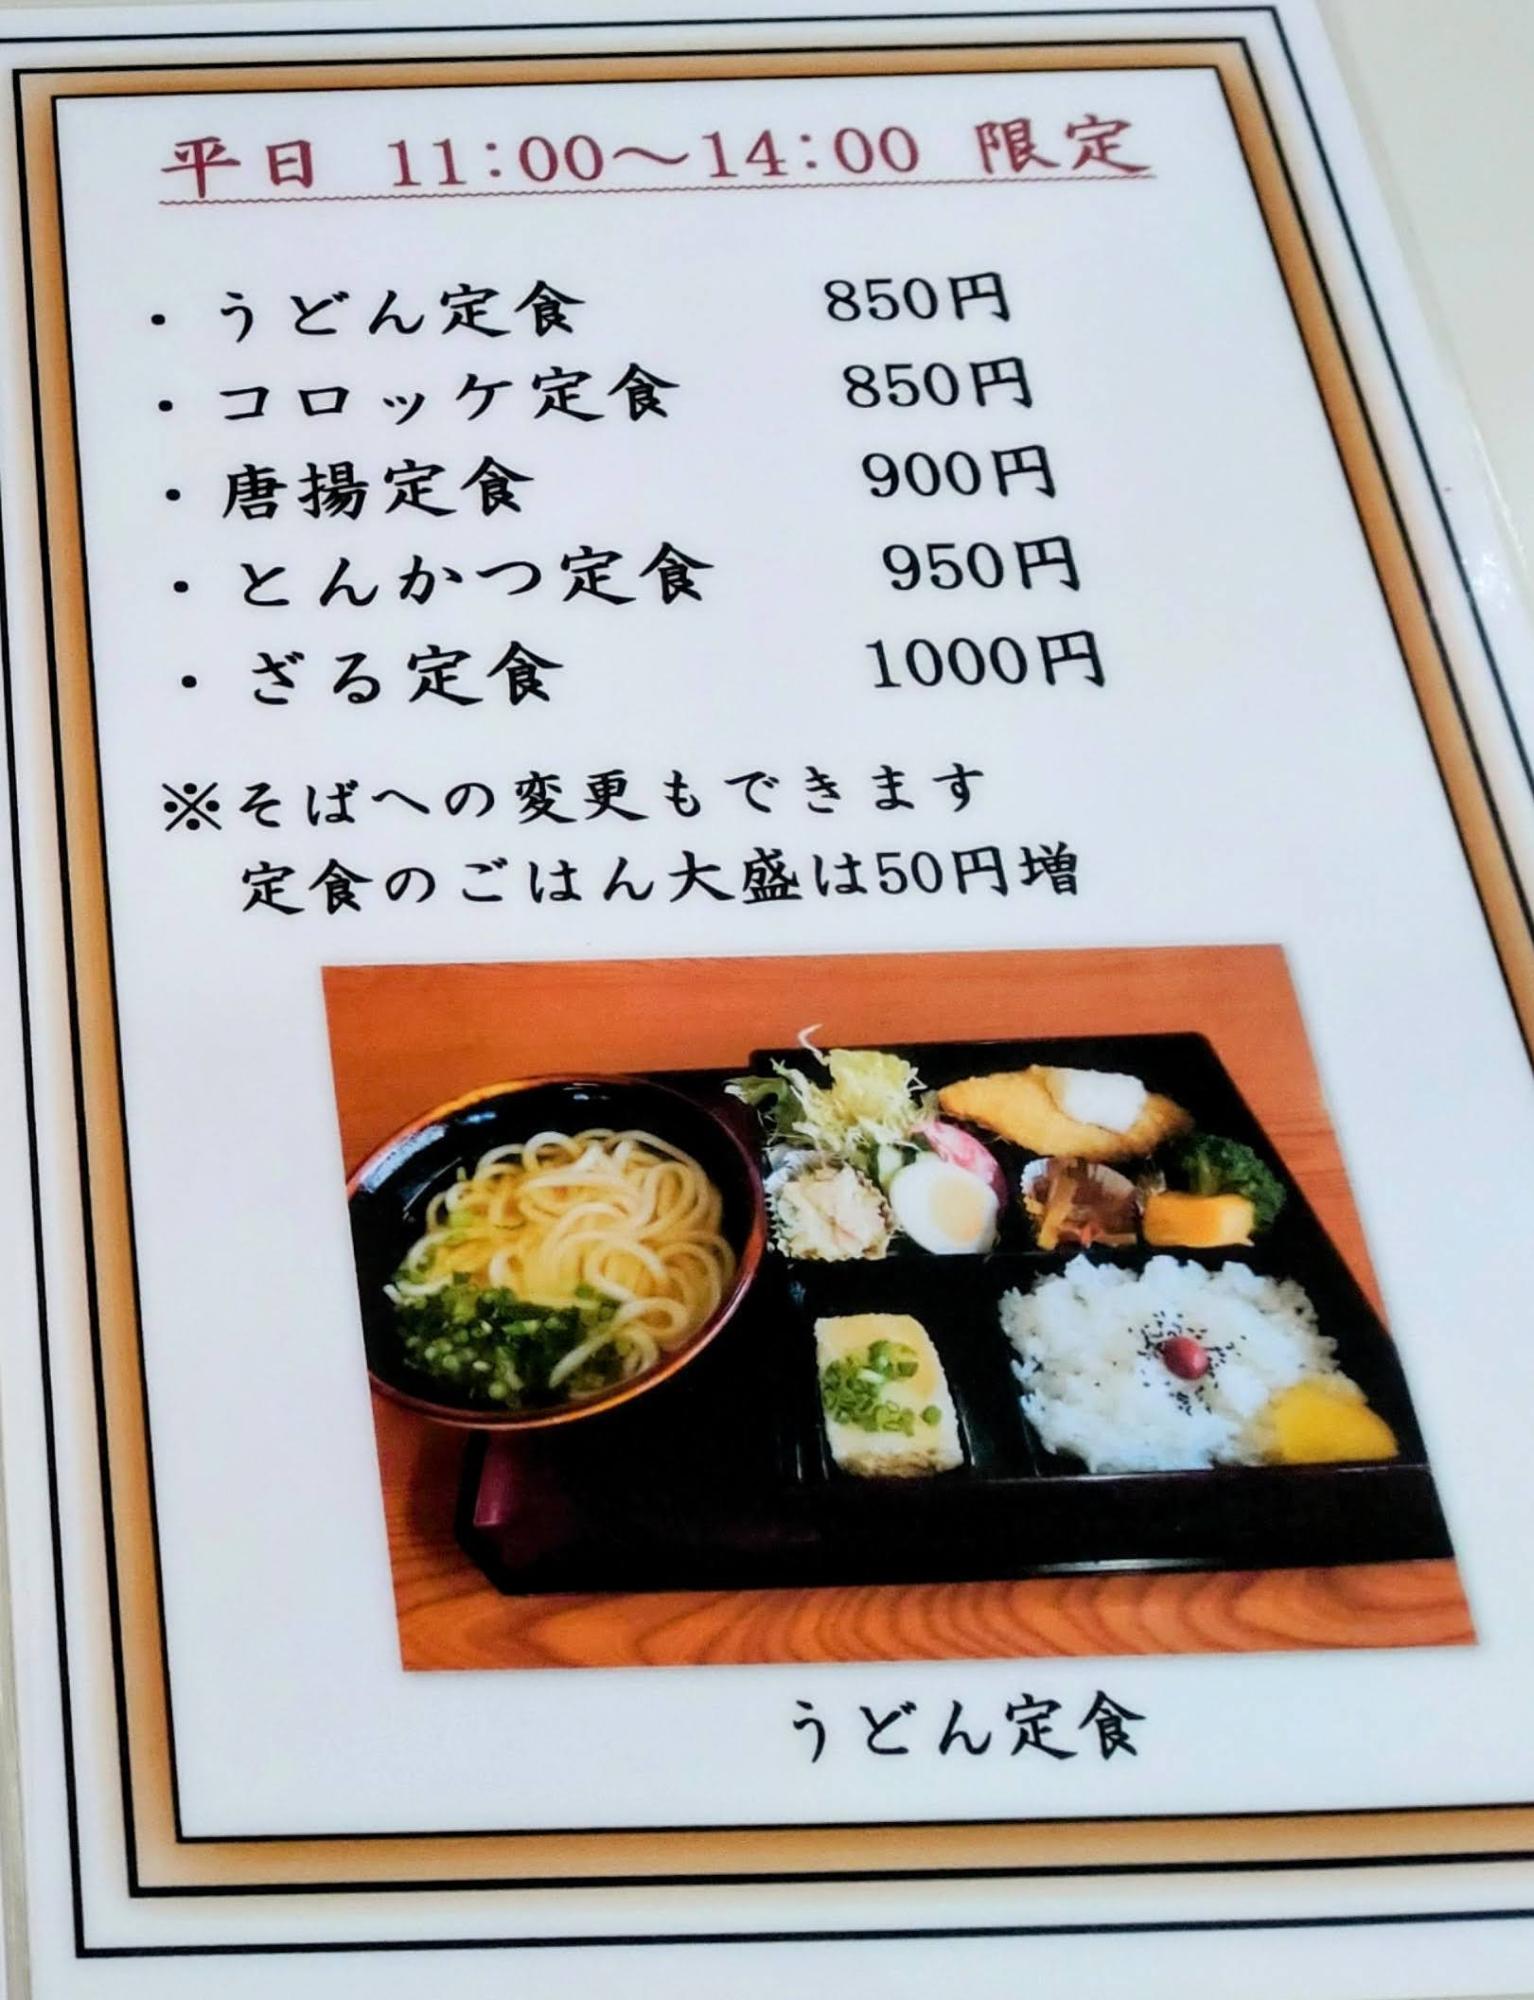 平日 11:00～14:00 限定
・うどん定食 850円
・コロッケ定食 850円
・唐揚定食 900円
・とんかつ定食 950円
・ざる定食 1000円
※そばへの変更もできます
定食のごはん大盛は50円増
うどん定食